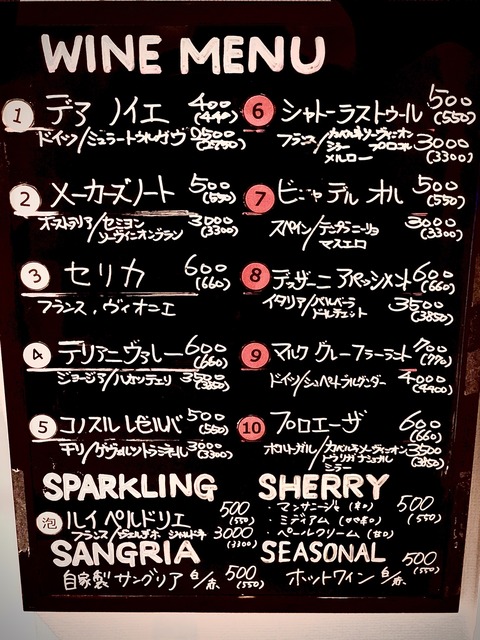 WINE MENU
1 デア ノイエ 400 (440)
ドイツ/ミュラートゥルガウ 2500 (2750)
2 メーカーズノート 500 (550)
オーストラリア/セミヨン 3000 (3300)
ソーヴィニオンブラン
3 セリカ 600 (660)
フランス、ヴィオニエ
4 テリアーニヴァレー 600 (660)
ジョージア/ルカツテリ 3500 (3850)
5 コノスル レゼルバ 500 (550)
チリ/ゲヴュルツトラミネール 3000 (3300)
6 シャトーラストゥール 500 (550)
フランス/カベルネソーヴィニオン 3000 (3300)
シラー
メルロー
7 ビニャ デル オル 500 (550)
スペイン/テンプラニーリョ 3000 (3300)
マスエロ
8 デッザーニ アパッシメント 600 (660)
イタリア/バルベーラ 3500 (3850)
ドルチェット
9 マルク グルーフラーラント 700 (770)
ドイツ/シュペートブルグンダー 4000 (4400)
10 プロエーザ 600 (660)
ポルトガル/カベルネソーヴィニオン 3500 (3850)
トウリガナショナル
シラー
SPARKLING
泡 ルイ ペルドリエ 500 (550)
フランス/ シャルドネ 3000 (3300)
SANGRIA
自家製 サングリア 白/赤 500 (550)
SHERRY
・マンサニージャ (辛口) 500 (550)
・ミディアム
・ペールクリーム (甘口)
SEASONAL
ホットワイン 白/赤 500 (550)